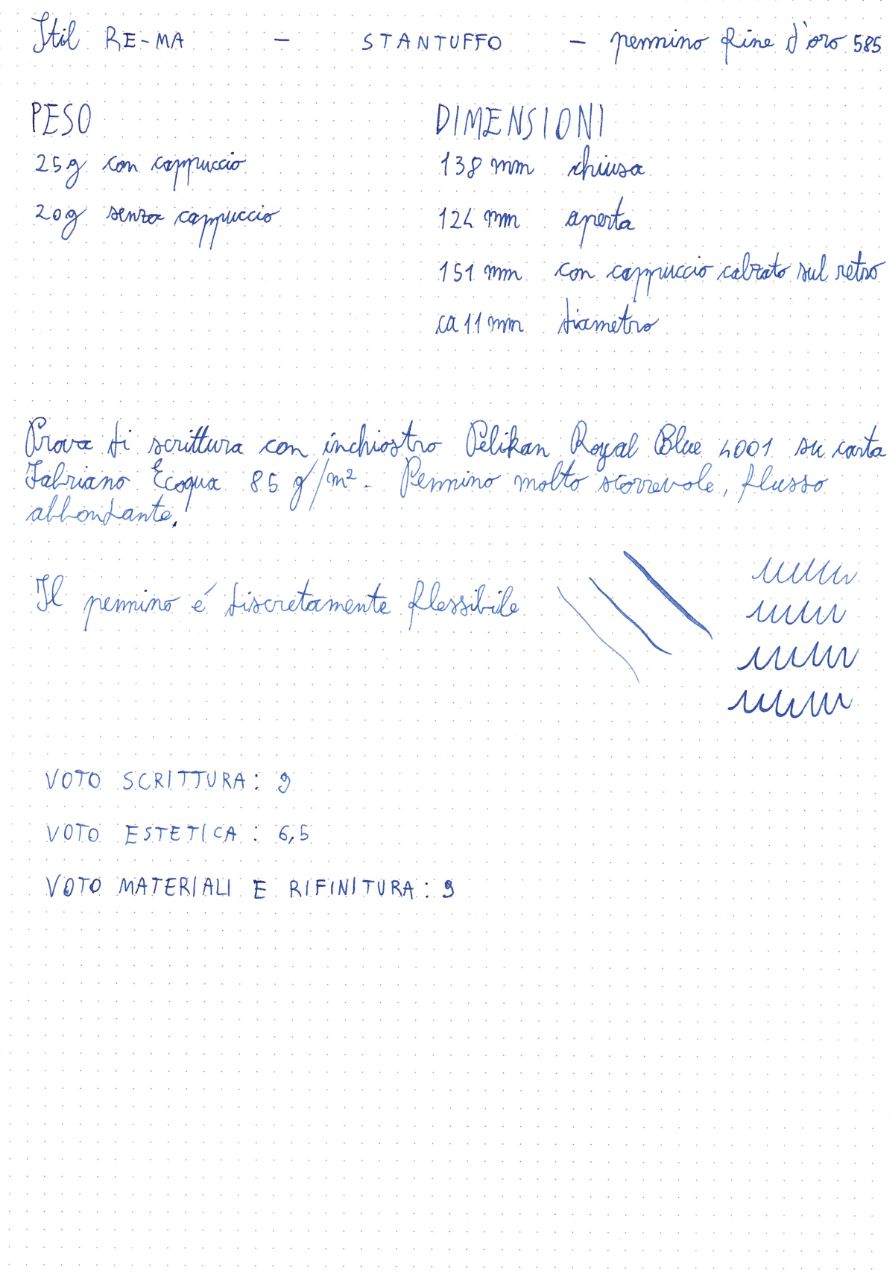 Stil RE-MA - STANTUFFO - pennino fine d'oro 585
PESO
25g con cappuccio
20g senza cappuccio
DIMENSIONI
138 mm chiusa
124 mm aperta
151 mm con cappuccio calzato sul retro
ca 11 mm diametro
Prova di scrittura con inchiostro Pelikan Royal Blue 4001 su carta
Fabriano Ecoqua 85 g/m². Pennino molto scorrevole, flusso
abbondante.
Il pennino é discretamente flessibile
VOTO SCRITTURA: 9
VOTO ESTETICA: 6,5
VOTO MATERIALI E RIFINITURA: 9